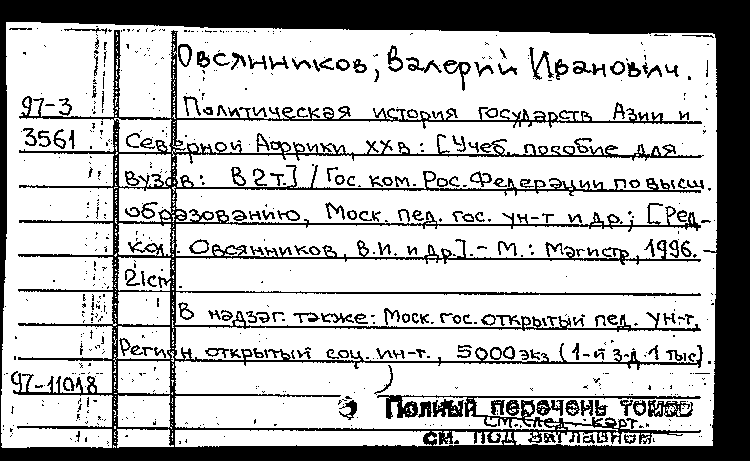 Овсянников, Валерий Иванович.
97-3 Политическая история государств Азии и
3561 Северной Африки, XX в: [Учеб. пособие для
вузов: В 2 т.] / Гос. ком. Рос. Федерации по высш.
образованию, Моск. пед. гос. ун-т и др.; [Ред-
кол.: Овсянников, В.И. и др.].- М.: Магистр, 1996. -
21cm.
В надзаг. также: Моск. гос. открытый пед. ун-т,
Регион. открытый соц. ин-т., 5000 экз (1-й з-д 1 тыс).
97-11018
Полный перечень томов
см. след. карт.
см. под заглавием